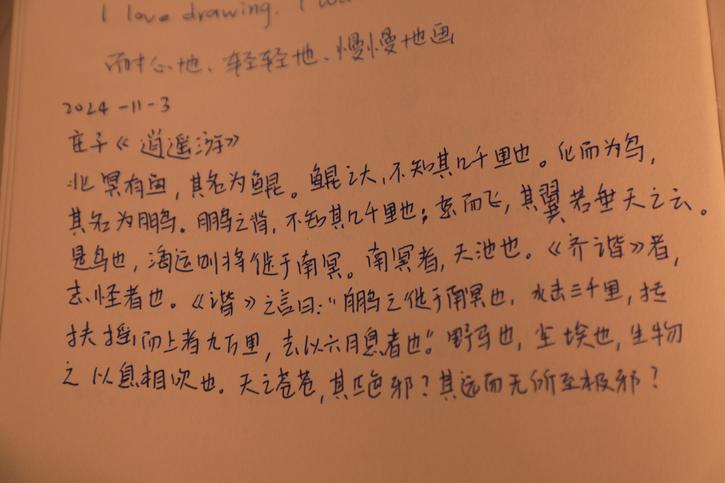 I love drawing. I
耐心地、轻轻地、慢慢地画
2024-11-3
庄子《逍遥游》
北冥有鱼，其名为鲲。鲲之大，不知其几千里也。化而为鸟，
其名为鹏。鹏之背，不知其几千里也；怒而飞，其翼若垂天之云。
是鸟也，海运则将徙于南冥。南冥者，天池也。《齐谐》者，
志怪者也。《谐》之言曰：“鹏之徙于南冥也，水击三千里，抟
扶摇而上者九万里，去以六月息者也”。野马也，尘埃也，生物
之以息相吹也。天之苍苍，其正色邪？其远而无所至极邪？